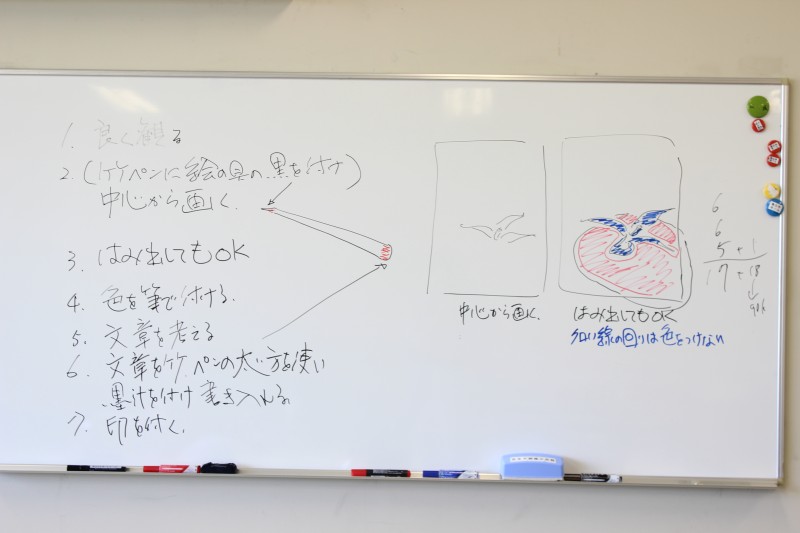 1. 良く観る
2. (竹ペンに絵の具の黒を付け)
中心から画く.
3. はみ出してもOK
4. 色を筆で付ける.
5. 文章を考える
6. 文章を竹ペンの太い方を使い
墨汁を付け書き入れる.
7. 印を付く.
中心から画く.
はみ出してもOK
細い線の回りは色をつけない
6
6
5+1
17+18